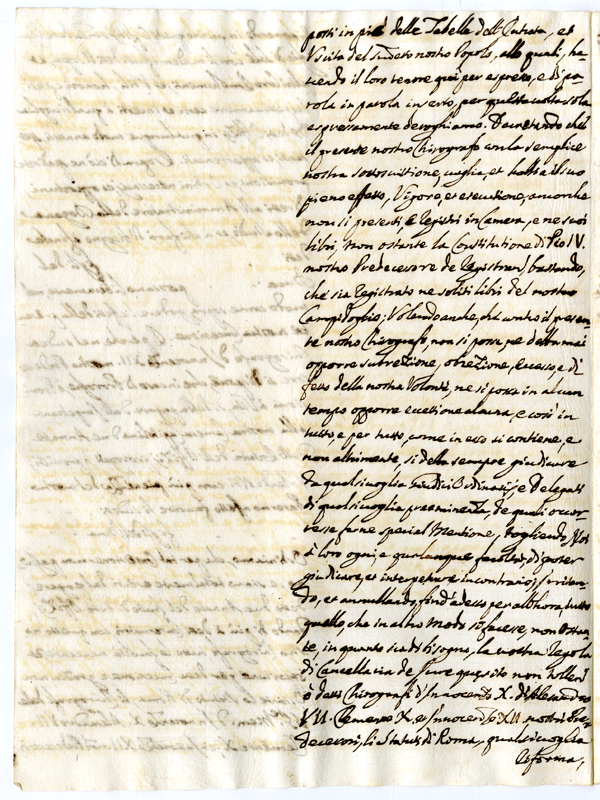 posti in piè delle Tabelle dell'Entrata, et
Uscita del sudetto nostro Popolo, alle quali, ha-
vendo il loro tenore quì per espresso, e di pa-
rola in parola inserto, per questa volta sola
espressamente deroghiamo. Decretando che
il presente nostro Chirografo con la semplice
nostra sottoscrittione, vaglia, et habbia il suo
pieno effetto, Vigore, et esecutione, ancorche
non si presenti, e Registri in Camera, e ne suoi
libri, (non ostante la Constitutione di Pio IV.
nostro Predecessore de Registrand:) bastando,
che sia Registrato ne soliti libri del nostro
Campidoglio; Volendo anche, che contro il presen-
te nostro Chirografo, non si possa, ne debba mai
opporre subrezione, obrezione, Eccesso, e di-
fetto della nostra Volontà, ne si possa in alcun
tempo opporre eccettione alcuna, e così in
tutto, e per tutto, come in esso si contiene, e
non altrimente, si debba sempre giudicare
da qualsivoglia Giudici Ordinarij, e Delegati
di qualsivoglia preeminenza, de quali occor-
resse farne special Mentione, togliendo Noi
à loro ogni, e qualunque facoltà, di poter
giudicare, et interpetrare in contrario; Irritan-
do, et annullando, sind'adesso per all'hora, tutto
quello, che in altro modo si facesse, non ostan-
te, in quanto sia di bisogno, la nostra Regola
di Cancellaria de Jure quesito non tollen:
ò detti Chirografi d'Innocenzo X. di Alessandro
VII. Clemente X. et Innocenzo XII. nostri Pre-
decessori, li Statuti di Roma, qualsivoglia
Riforma,